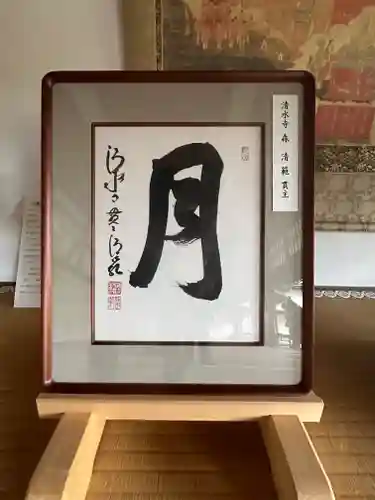 清水寺 森 清範 貫主
月
清水貫主清範